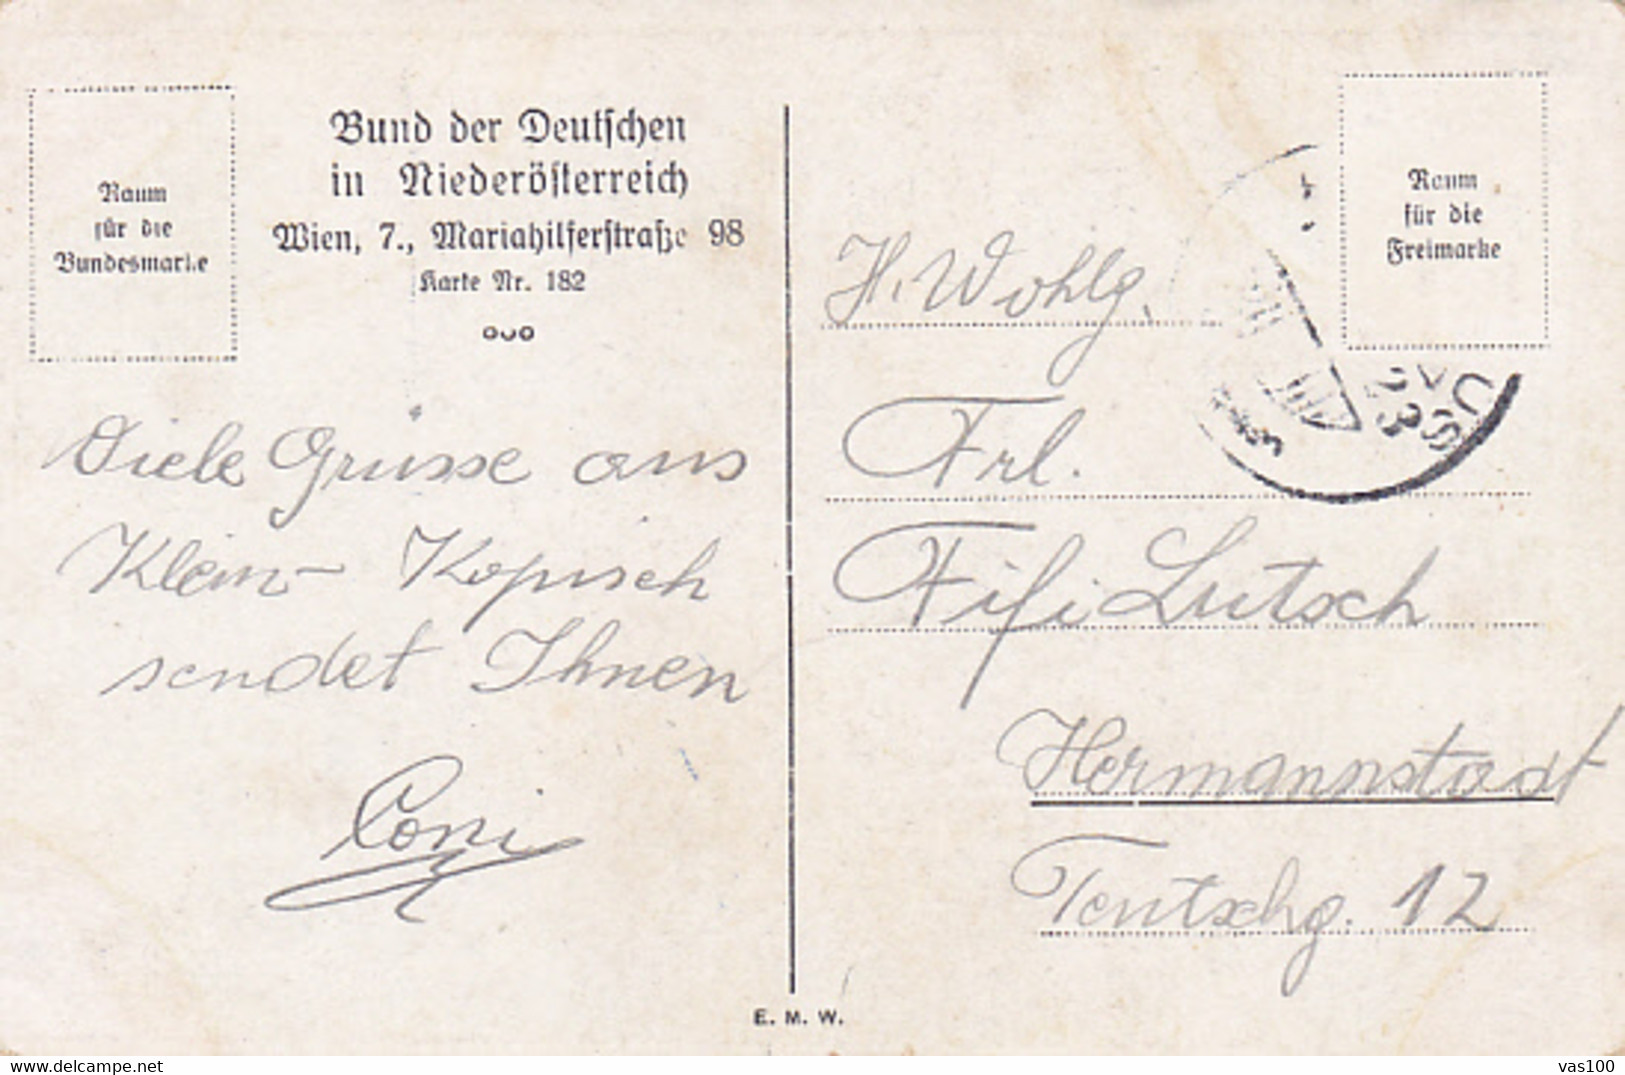 Raum
für die
Bundesmarke
Bund der Deutschen
in Niederösterreich
Wien, 7., Mariahilferstraße 98
Karte Nr. 182
Viele Grüsse aus
Klein-Kopisch
sendet Ihnen
Coni
Raum
für die
Freimarke
23
H. Wohlg.
Frl.
Fifi Lutsch
Hermannstadt
Teutschg. 12
E. M. W.
www.delcampe.net
vas100